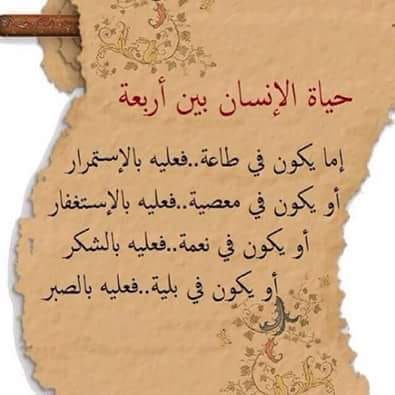 حياة الإنسان بين أربعة
إما يكون في طاعة..فعليه بالإستمرار
أو يكون في معصية..فعليه بالإستغفار
أو يكون في نعمة..فعليه بالشكر
أو يكون في بلية..فعليه بالصبر